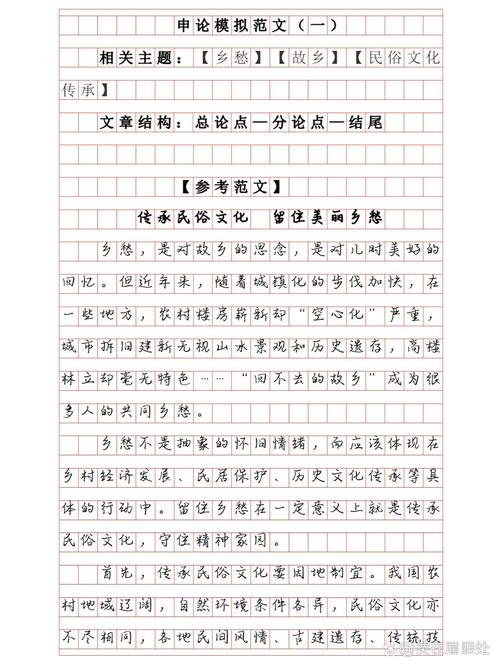 申论模拟范文(一)
相关主题:【乡愁】【故乡】【民俗文化
传承】
文章结构:总论点—分论点—结尾
【参考范文】
传承民俗文化 留住美丽乡愁
乡愁,是对故乡的思念,是对儿时美好的
回忆。但近年来,随着城镇化的步伐加快,在
一些地方,农村楼房崭新却“空心化”严重,
城市拆旧建新无视山水景观和历史遗存,高楼
林立却毫无特色……“回不去的故乡”成为很
多人的共同乡愁。
乡愁不是抽象的怀旧情绪,而应该体现在
乡村经济发展、民居保护、历史文化传承等具
体的行动中。留住乡愁在一定意义上就是传承
民俗文化,守住精神家园。
首先,传承民俗文化要因地制宜。我国农
村地域辽阔,自然环境条件各异,民俗文化亦
不尽相同,各地民间风情、古建遗存、传统技